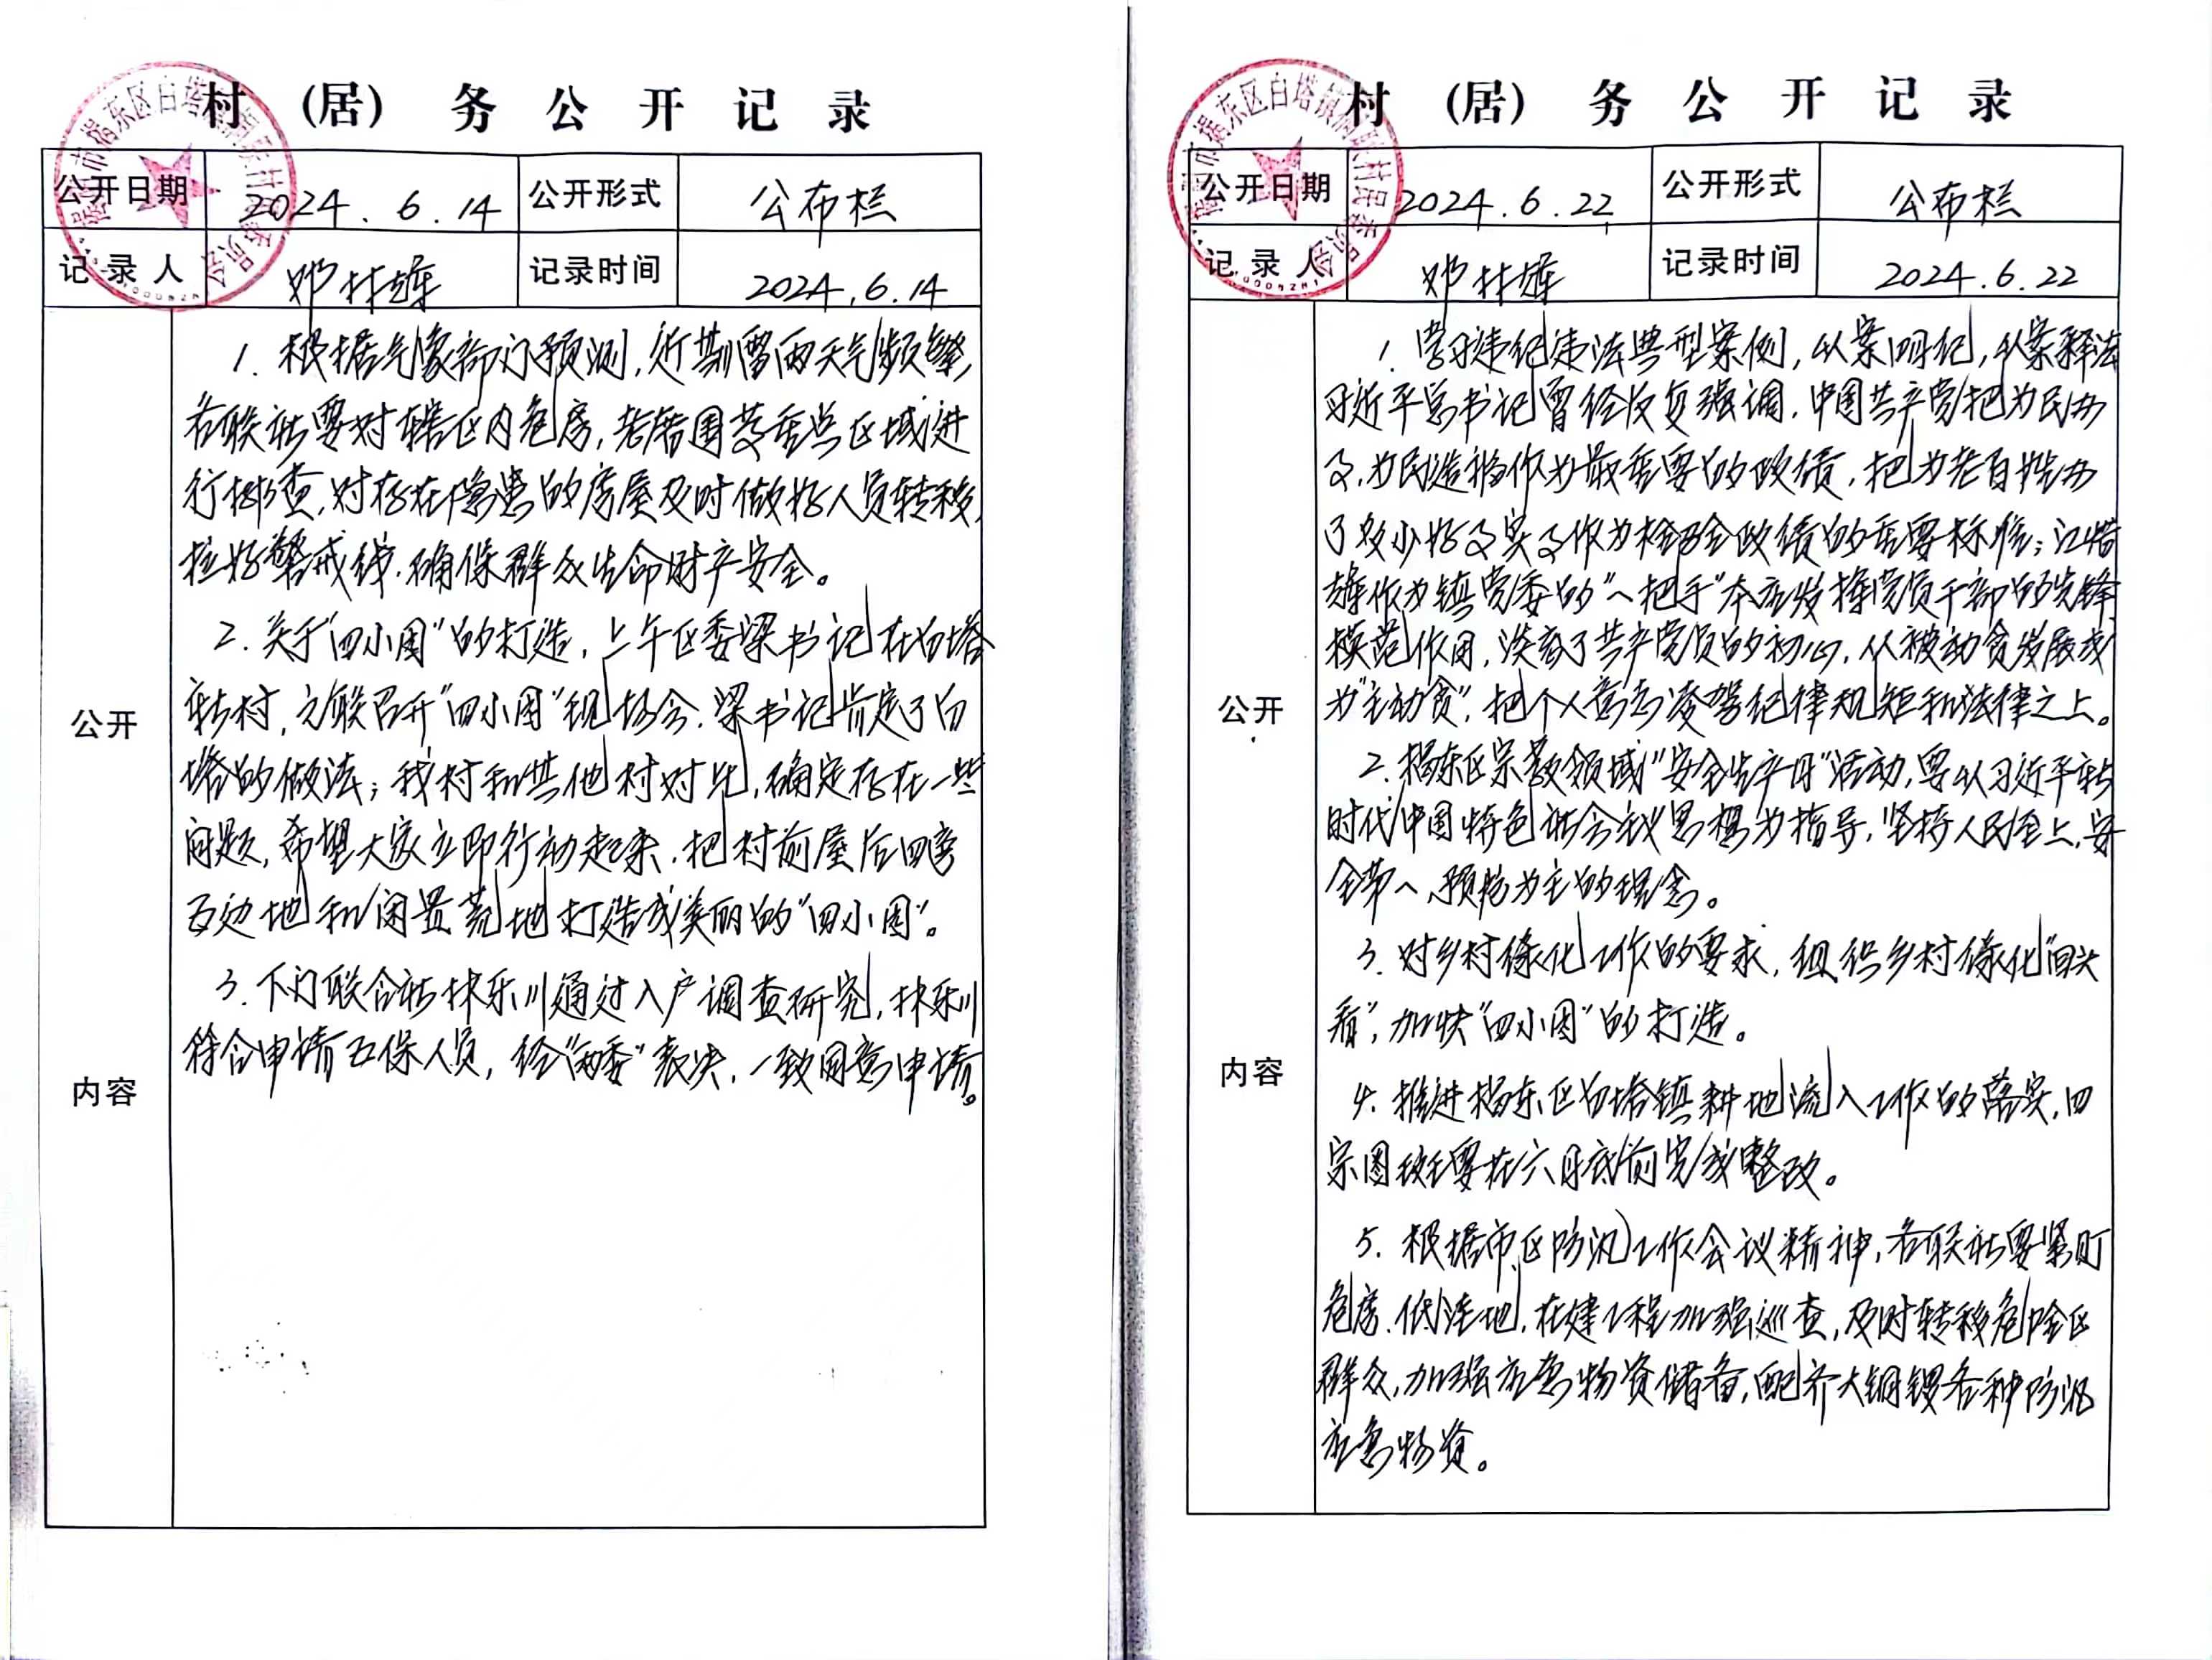 村（居）务公开记录
公开日期 2024.6.14 公开形式 公布栏
记录人 邓林雄 记录时间 2024.6.14
公开
内容
1. 根据气象部门预测，近期雷雨天气频繁，
各联社要对辖区内危房，老厝围等重点区域进
行排查，对存在隐患的房屋及时做好人员转移，
拉好警戒线，确保群众生命财产安全。
2. 关于“四小园”的打造，上午区委梁书记在白塔
村，联召开“四小园”现场会，梁书记肯定了白
塔的做法；我村和其他村对比，确定存在一些
问题，希望大家立即行动起来，把村前屋后四旁
五边地和闲置荒地打造成美丽的“四小园”。
3. 下门联合社林乐川通过入户调查研究，林乐川
符合申请五保人员，经“两委”表决，一致同意申请。
村（居）务公开记录
公开日期 2024.6.22 公开形式 公布栏
记录人 邓林雄 记录时间 2024.6.22
公开
内容
1. 学习违纪违法典型案例，从案明纪，从案释法
习近平总书记曾经反复强调，中国共产党把为民办
事，为民造福作为最重要的政绩，把为老百姓办
了多少好事实事作为检验政绩的重要标准；江
雄作为镇党委的“一把手”本应发挥党员干部的先锋
模范作用，淡忘了共产党员的初心，从被动贪发展成
为“主动贪”，把个人意志凌驾纪律规矩和法律之上。
2. 揭东区宗教领域“安全生产月”活动，要以习近平新
时代中国特色社会主义思想为指导，坚持人民至上，安
全第一，预防为主的理念。
3. 对乡村绿化工作的要求，组织乡村绿化“回头
看”，加快“四小园”的打造。
4. 推进揭东区白塔镇耕地流入工作的落实，四
宗图斑要在六月底前完成整改。
5. 根据市区防汛工作会议精神，各联社要紧盯
危房、低洼地，在建工程加强巡查，及时转移危险区
群众，加强应急物资储备，配齐大铜锣各种防汛
应急物资。